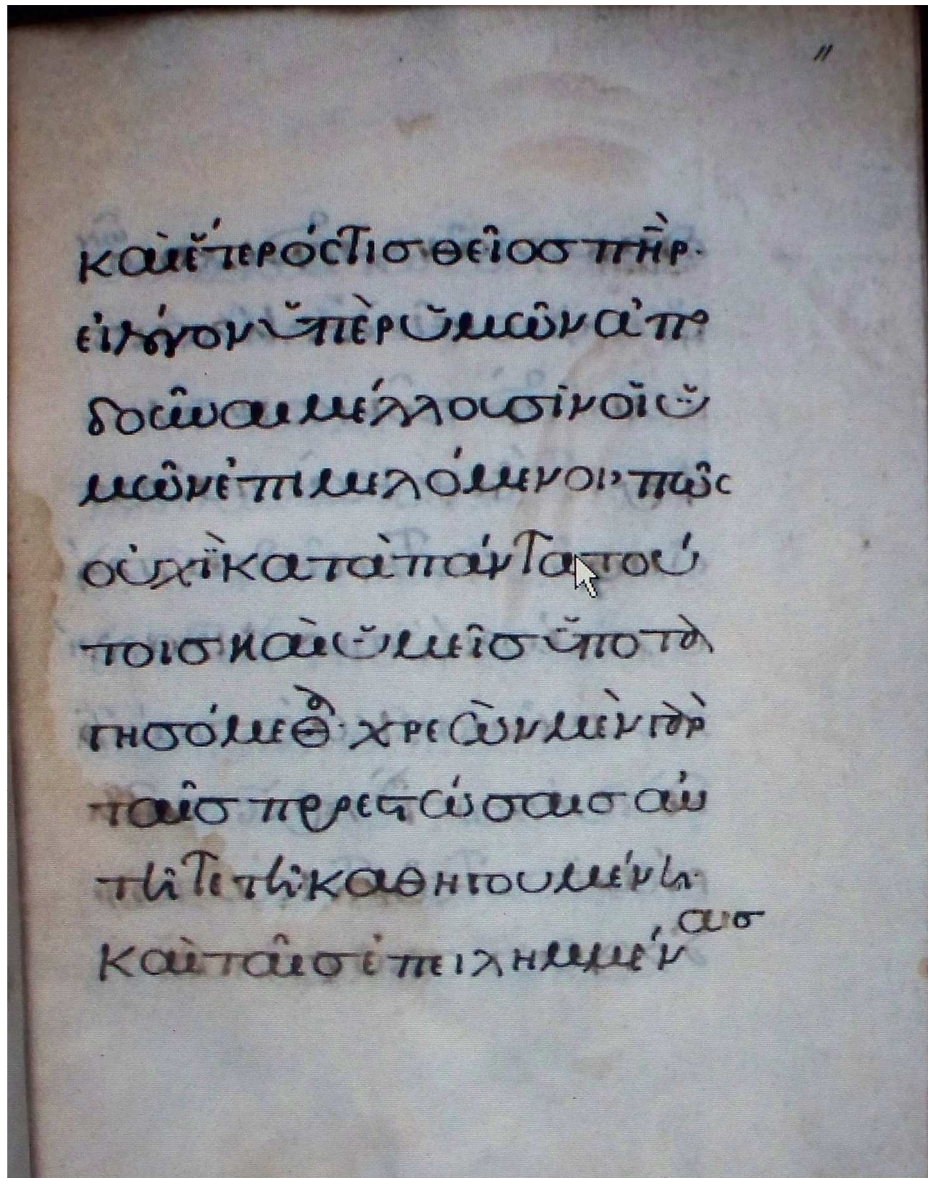 11
καὶ ἕτερός τις θεῖος πὴρ·
ὑπὲρ ὑμῶν ἀπο
δοῦναι μέλλουσιν οἱ ὑ
μῶν ἐπιμελόμενοι· πῶς
οὐχὶ κατὰ πάντα τού
τοις καὶ ὑμεῖς ὑποτα
γησόμεθα· χρεὼν μὲν γὰρ
ταῖς αὐ
τῆ τε τῆ καθηγουμένη·
καὶ ταῖς ἐπειλημμέναις